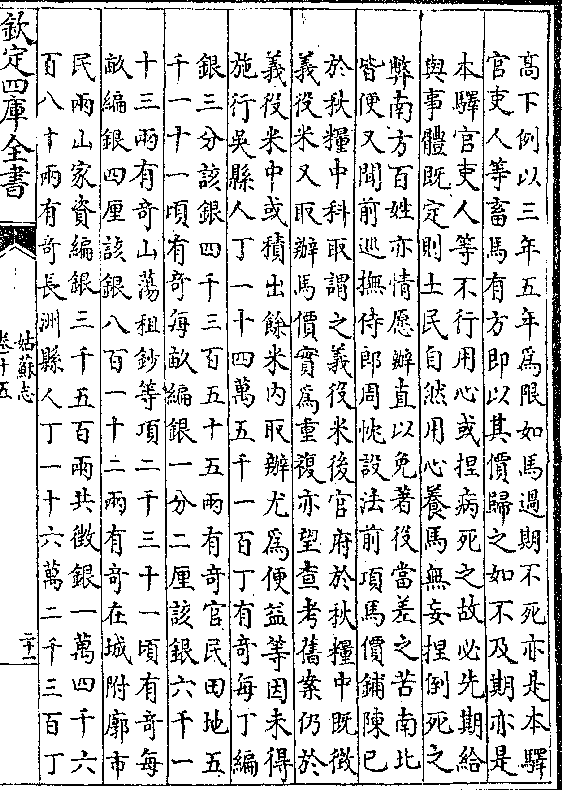 高下例以三年五年為限如馬過期不死亦是本驛
官吏人等畜馬有方即以其價歸之如不及期亦是
本驛官吏人等不行用心或捏病死之故必先期給
與事體既定則土民自然用心養馬無妄捏倒死之
弊南方百姓亦情愿辦直以免著役當差之苦南北
皆便又聞前巡撫侍郎周忱設法前項馬價鋪陳已
於秋糧中科取謂之義役米後官府於秋糧中既徵
義役米又取辦馬價實為重複亦望查考舊案仍於
義役米中或積出餘米内取辦尤為便益等因未得
施行吳縣人丁一十四萬五千一百丁有奇每丁編
銀三分該銀四千三百五十五兩有奇官民田地五
千一十一頃有奇每畝編銀一分二厘該銀六千一
十三兩有奇山蕩租鈔等項二千三十一頃有奇每
畝編銀四厘該銀八百一十二兩有奇在城附廓市
民兩山家資編銀三千五百兩共徵銀一萬四千六
百八十兩有奇長洲縣人丁一十六萬二千三百丁
欽定四庫全書
姑蘇志
卷十五
二十一